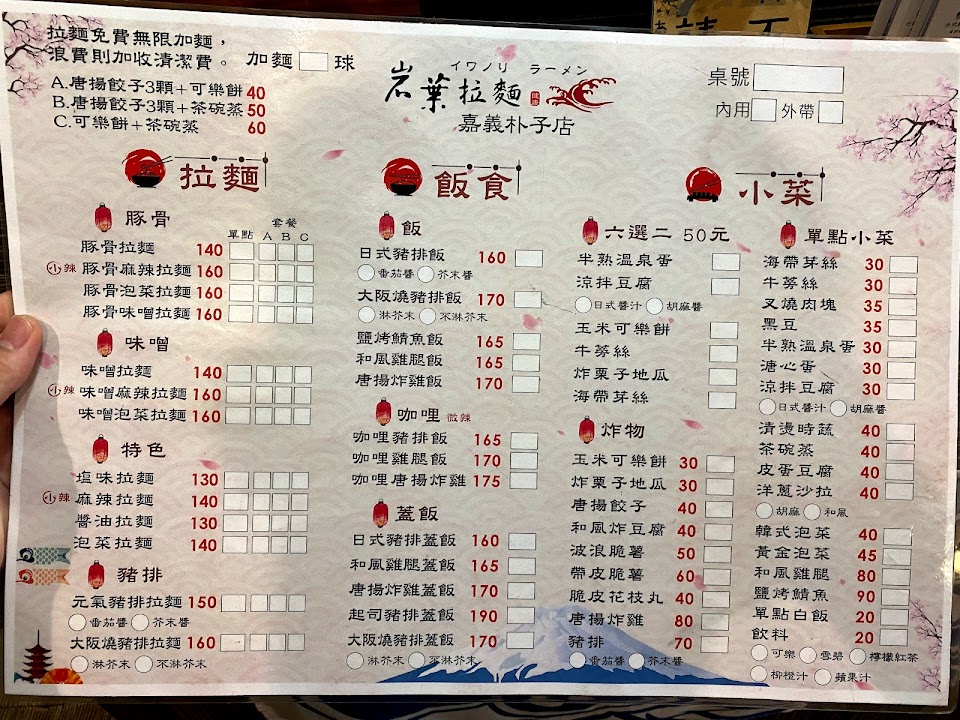 拉麵免費無限加麵，
浪費則加收清潔費。 加麵 球
A.唐揚餃子3顆+可樂餅 40
B.唐揚餃子3顆+茶碗蒸 50
C.可樂餅+茶碗蒸 60
イワノリ ラーメン
岩葉拉麵
嘉義朴子店
桌號
內用 外帶
拉麵
豚骨
單點 套餐 A B C
豚骨拉麵 140
小辣 豚骨麻辣拉麵 160
豚骨泡菜拉麵 160
豚骨味噌拉麵 160
味噌
味噌拉麵 140
小辣 味噌麻辣拉麵 160
味噌泡菜拉麵 160
特色
塩味拉麵 130
小辣 麻辣拉麵 140
醬油拉麵 130
泡菜拉麵 140
豬排
元氣豬排拉麵 150
番茄醬 芥末醬
大阪燒豬排拉麵 160
淋芥末 不淋芥末
飯食
飯
日式豬排飯 160
番茄醬 芥末醬
大阪燒豬排飯 170
淋芥末 不淋芥末
鹽烤鯖魚飯 165
和風雞腿飯 165
唐揚炸雞飯 170
咖哩 微辣
咖哩豬排飯 165
咖哩雞腿飯 170
咖哩唐揚炸雞 175
蓋飯
日式豬排蓋飯 160
和風雞腿蓋飯 165
唐揚炸雞蓋飯 170
起司豬排蓋飯 190
大阪燒豬排蓋飯 170
淋芥末 不淋芥末
小菜
六選二 50元
半熟溫泉蛋
涼拌豆腐
日式醬汁 胡麻醬
玉米可樂餅
牛蒡絲
炸栗子地瓜
海帶芽絲
炸物
玉米可樂餅 30
炸栗子地瓜 30
唐揚餃子 40
和風炸豆腐 40
波浪脆薯 50
帶皮脆薯 60
脆皮花枝丸 40
唐揚炸雞 80
豬排 70
番茄醬 芥末醬
單點小菜
海帶芽絲 30
牛蒡絲 30
叉燒肉塊 35
黑豆 35
半熟溫泉蛋 30
溏心蛋 30
涼拌豆腐 30
日式醬汁 胡麻醬
清燙時蔬 40
茶碗蒸 40
皮蛋豆腐 40
洋蔥沙拉 40
胡麻 和風
韓式泡菜 40
黃金泡菜 45
和風雞腿 80
鹽烤鯖魚 90
單點白飯 20
飲料 20
可樂 雪碧 檸檬紅茶
柳橙汁 蘋果汁